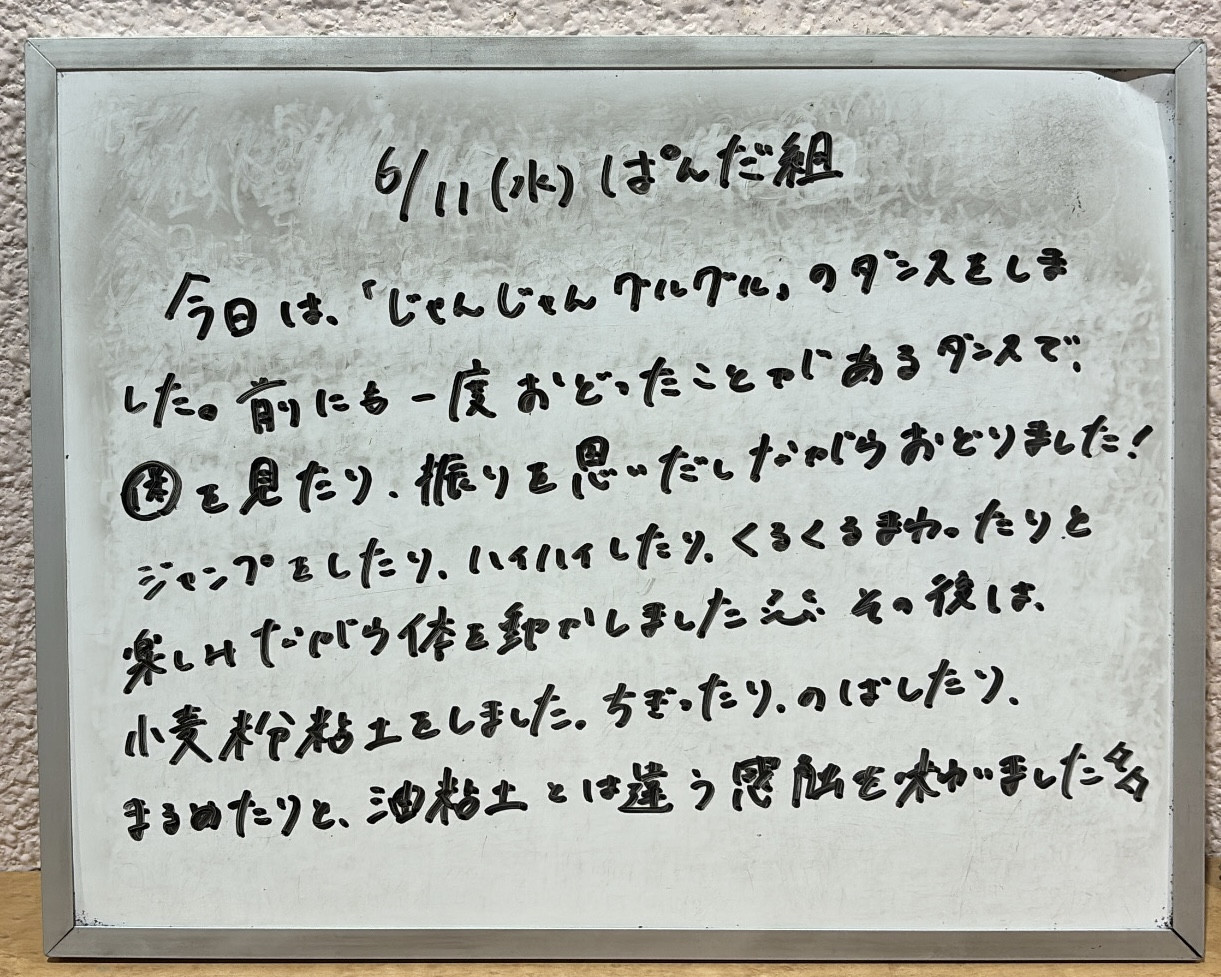 6/11(水)ぱんだ組
今日は、「じゃんじゃんグルグル」のダンスをしま
した。前にも一度おどったことがあるダンスで、
を見たり、振りを思いだしながらおどりました!
ジャンプをしたり、ハイハイしたり、くるくるまわったりと
楽しみながら体を動かしました その後は、
小麦粉粘土をしました。ちぎったり、のばしたり、
まるめたりと、油粘土とは違う感触を味わいました